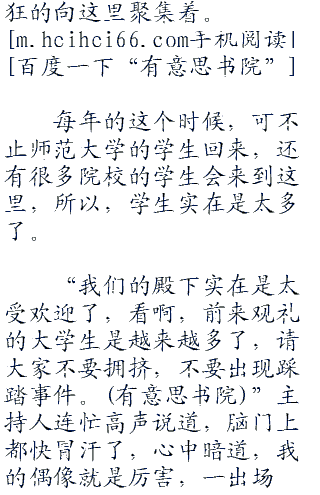 狂的向这里聚集着。
[m.hcihci66.com手机阅读|
[百度一下“有意思书院”]
每年的这个时候，可不
止师范大学的学生回来，还
有很多院校的学生会来到这
里，所以，学生实在是太多
了。
“我们的殿下实在是太
受欢迎了，看啊，前来观礼
的大学生是越来越多了，请
大家不要拥挤，不要出现踩
踏事件。(有意思书院)”主
持人连忙高声说道，脑门上
都快冒汗了，心中暗道，我
的偶像就是厉害，一出场